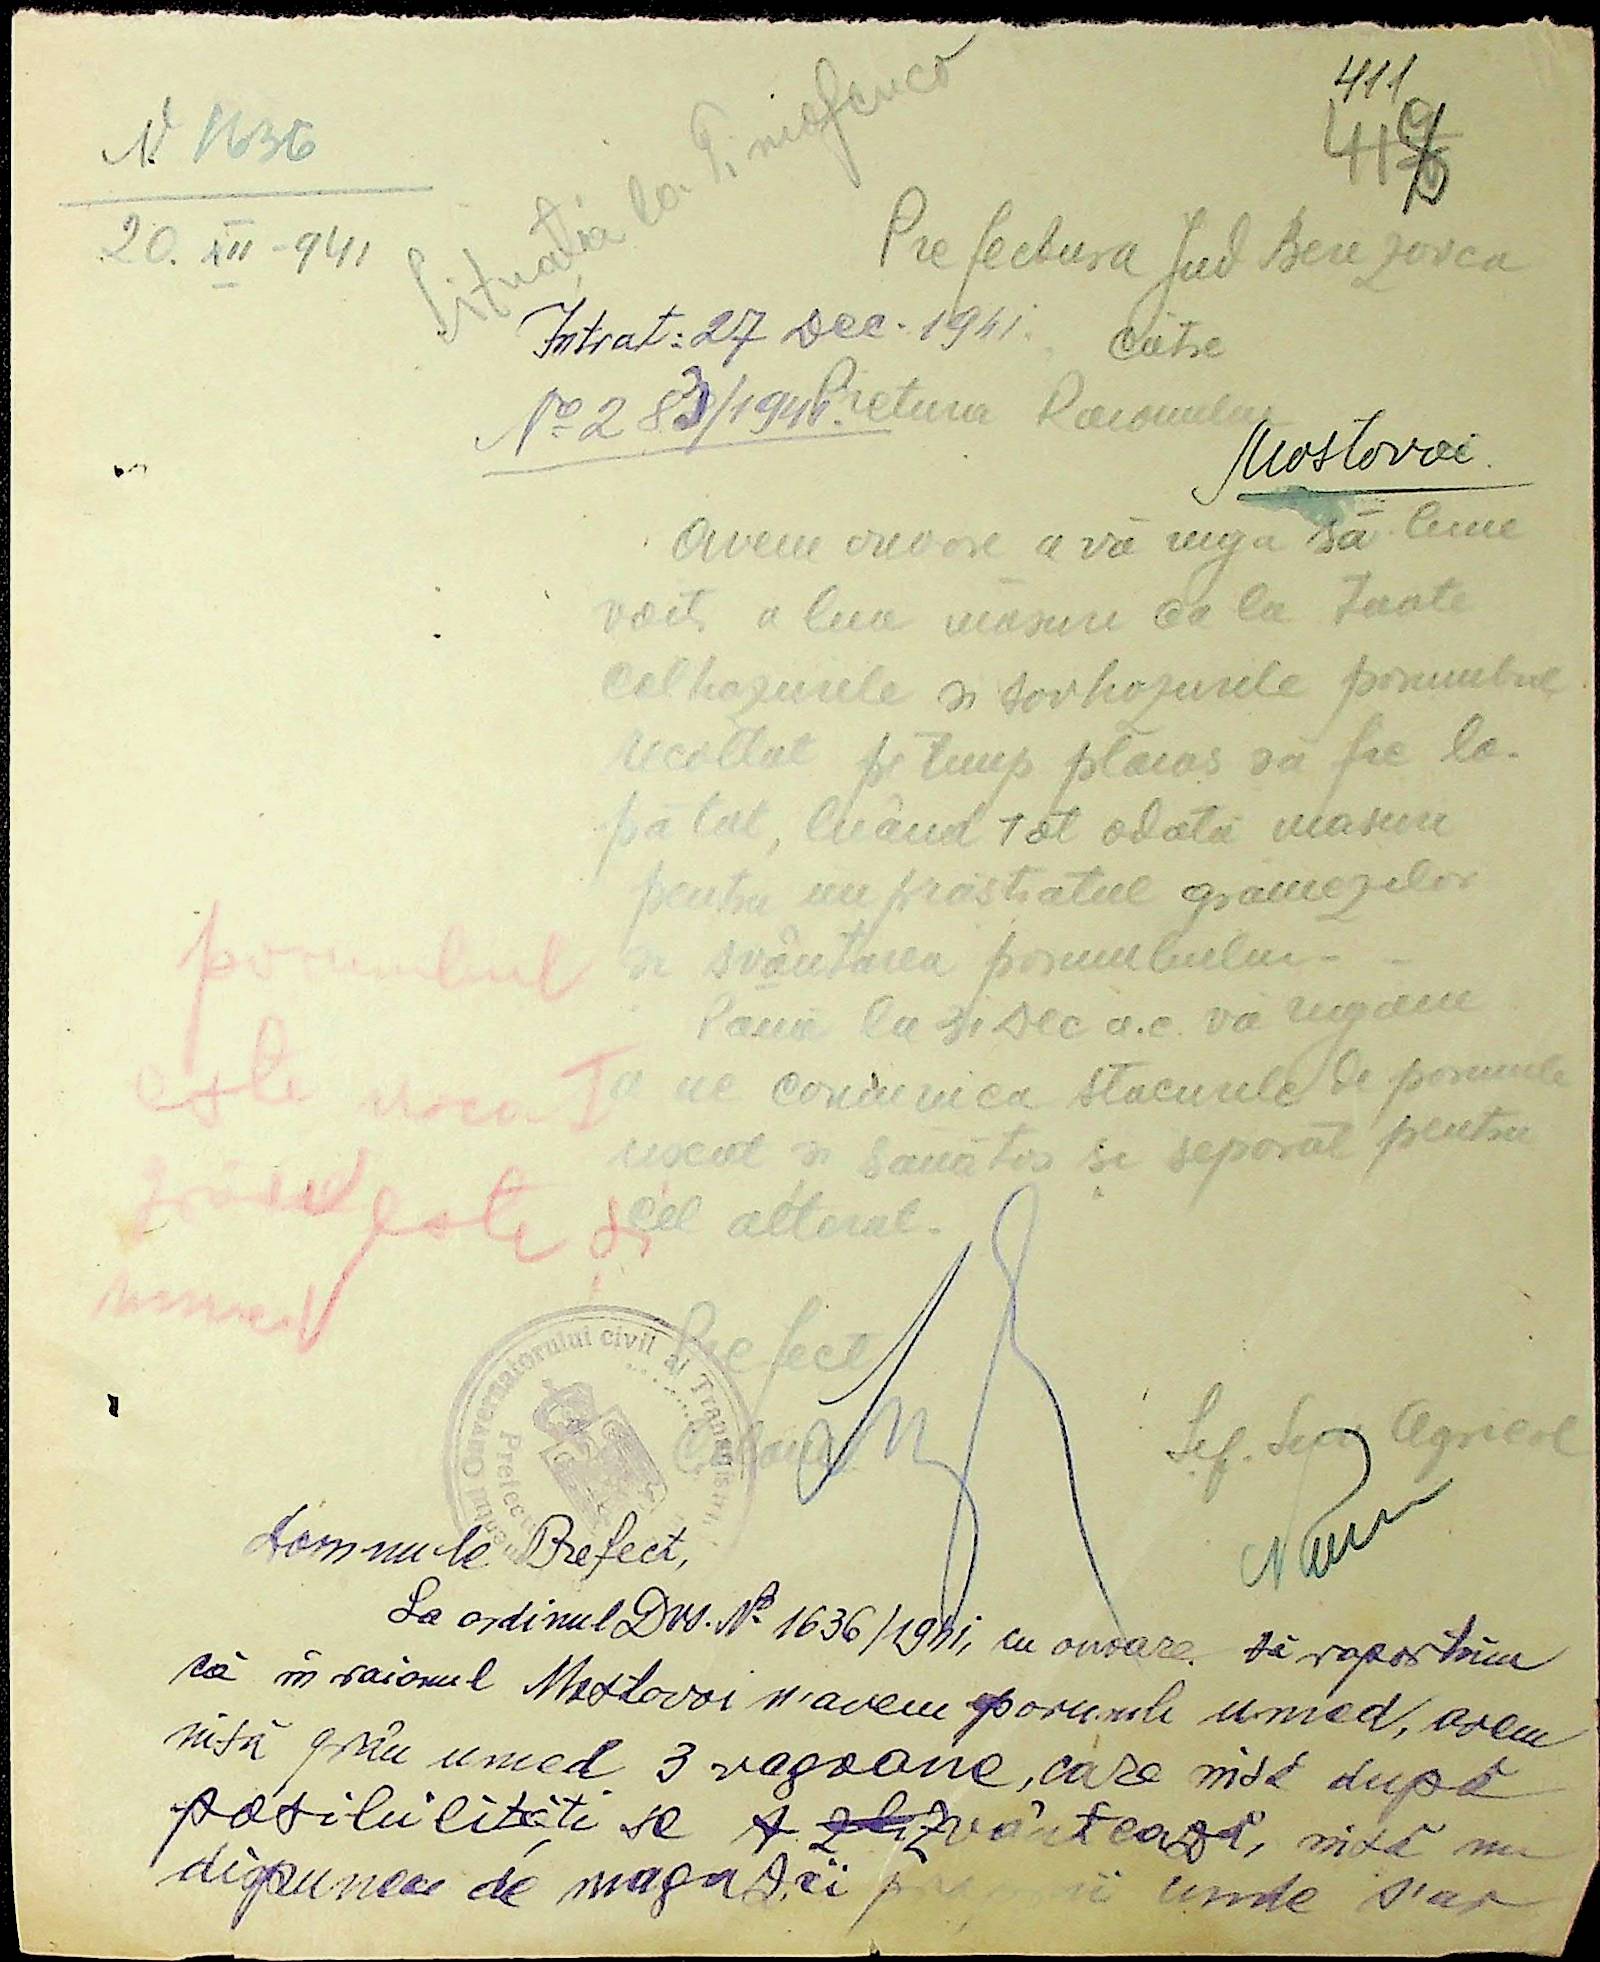 411
N. 1636
20. XII - 941
Situația la Timofenco
Prefectura Jud Berezovca
către
Intrat: 27 Dec. 1941.
No 283/1941.
Pretura Raionului
Mostovoi.
Avem onoare a vă ruga să bine
voiți a lua măsuri ca la toate
colhozurile și sovhozurile porumbul
recoltat pe timp ploios să fie lo-
pătat, luând tot odată masuri
pentru împrăștiatul grămezilor
și svântarea porumbului -
Până la 31 Dec a.c. vă rugăm
a ne comunica stocurile de porumb
uscat și sănătos și separat pentru
cel alterat.
porumbul
este uscat
grâul este și
umed
Prefect
Colonel
Șef. Serv Agricol
Guvernatorului civil al Transnistriei
Prefectura
Domnule Prefect,
La ordinul Dvs. No 1636/1941, cu onoare să raportăm
că în raionul Mostovoi n'avem porumb umed, avem
însă grâu umed 3 vagoane, care însă după
posibilități se zvântează, însă nu
dispunem de magazii unde s'ar